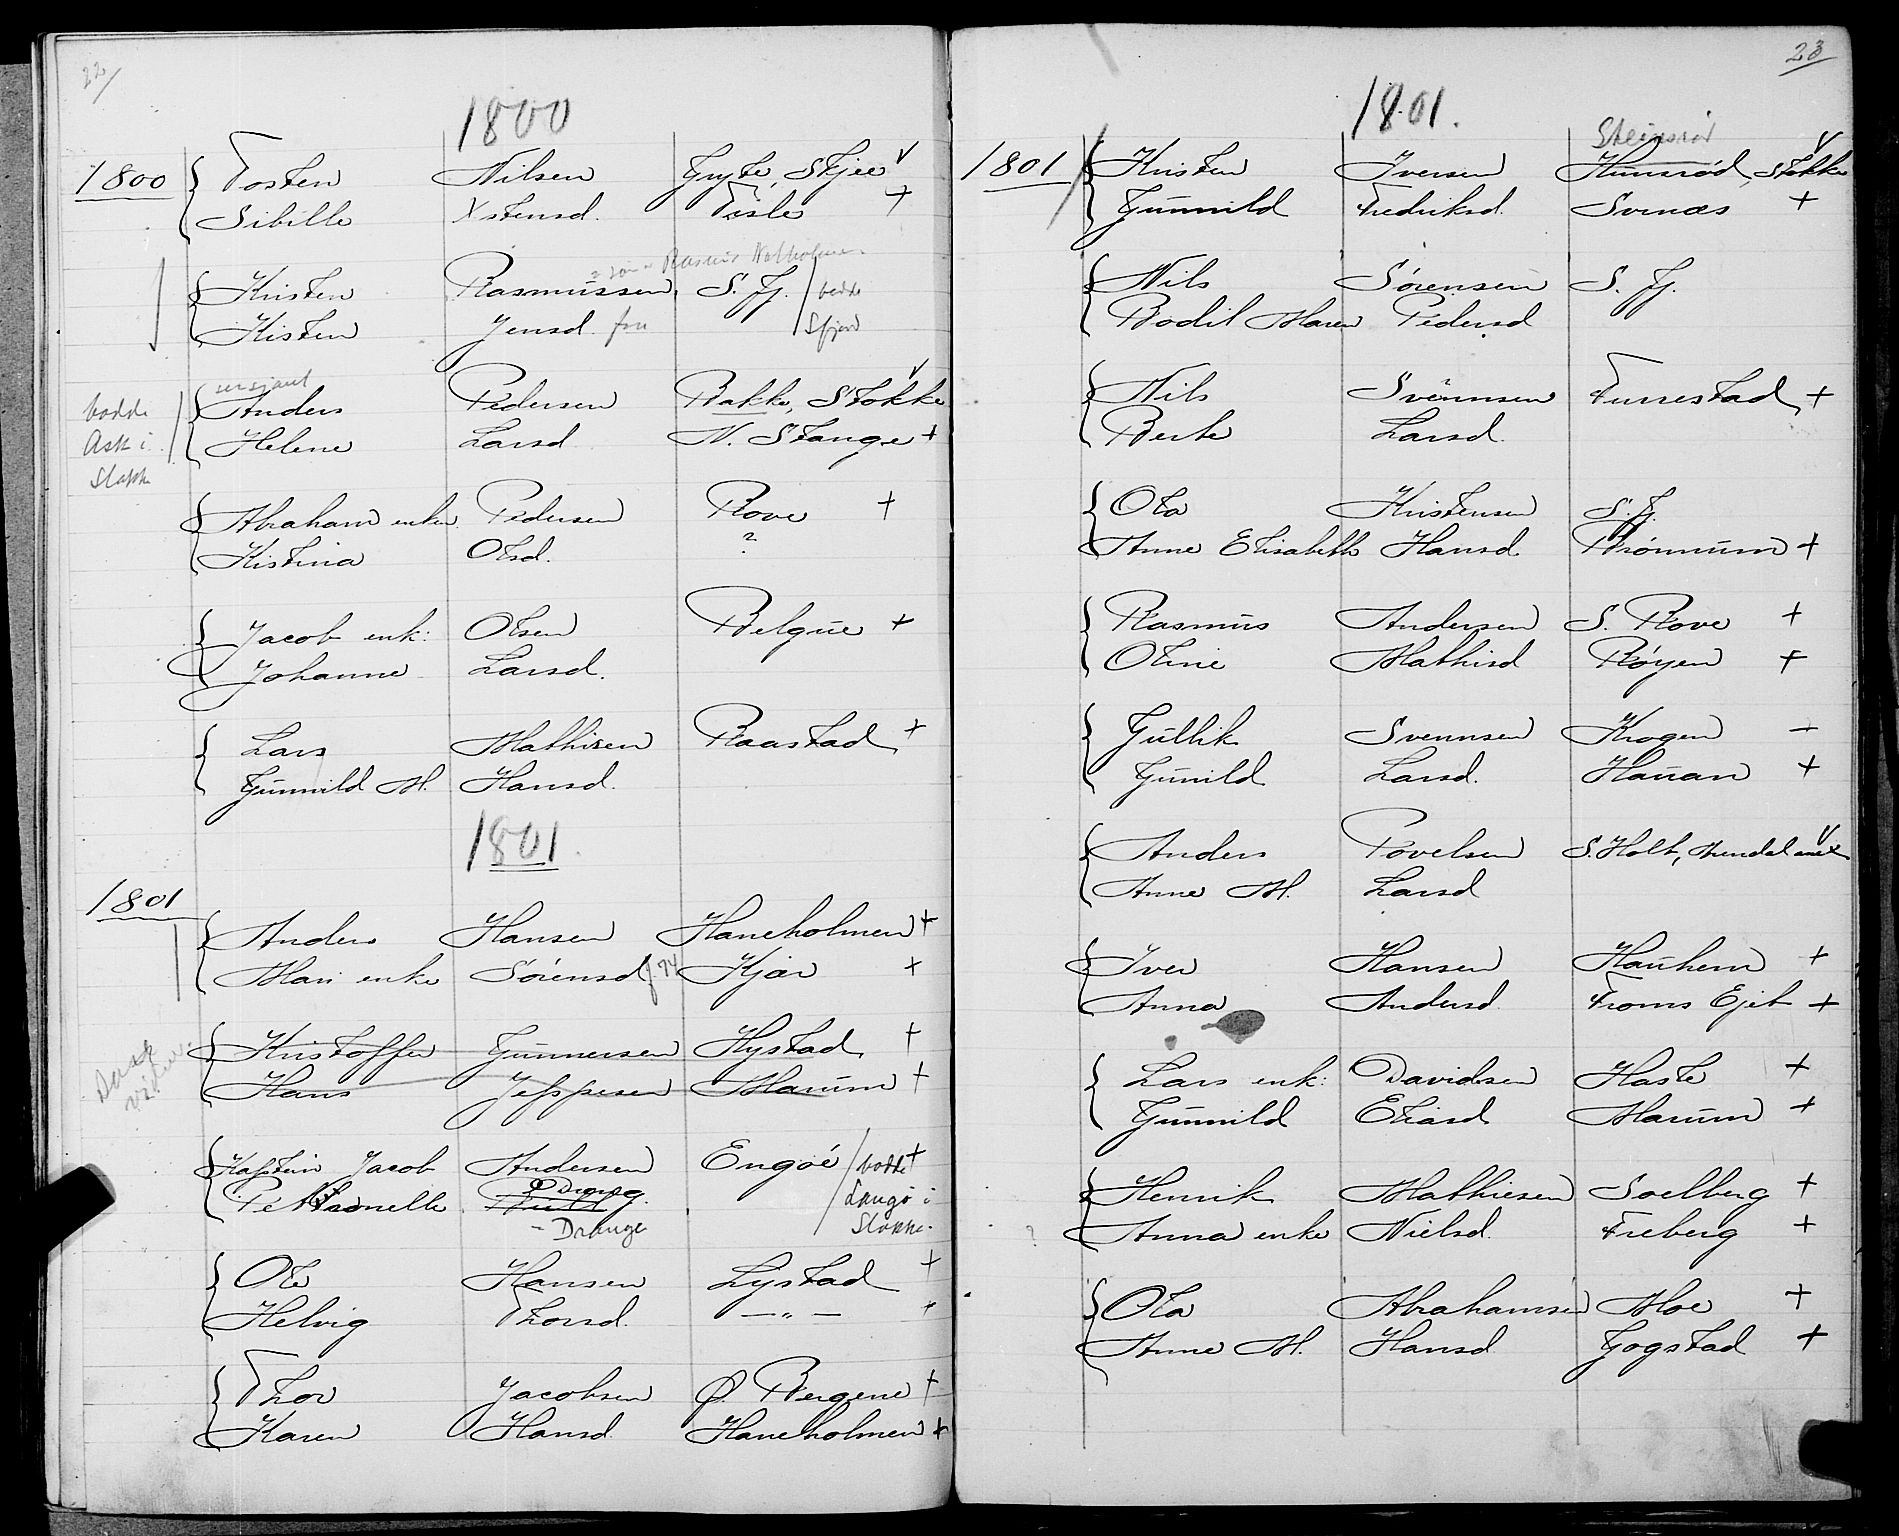 22/
1800
1800 Tosten Nilsen Gryte, Skjee v
Sibille Xstensd. Tisle +
= søn Rasmus
Kristen Rasmussen, S. Fj. / bodde
Kisten Jensd. fra
sersjant
bodde Anders Pedersen Bakke, Stokke v
Ask i Helene Larsd N. Stange +
Stokke
Abraham enkem. Pedersen Rove +
Kistina Olsd. ?
Jacob enk: Olsen Belgue +
Johanne Larsd.
Lars Mathisen Raastad +
Gunnild M. Hansd.
1801.
1801
Anders Hansen Haneholmen +
Mari enke Sørensd f 74 Kjær +
Kristoffer Gunnersen Hystad +
Hans Jespesen Marum +
Kaptein Jacob Andersen Engøe / bodde +
Petronelle Drange Langø i
- Drange Stokke.
Ole Hansen Lystad +
Helvig Thorsd. — „ — +
Thor Jacobsen Ø. Bergene +
Karen Hansd Haneholmen +
23
1801.
Steinsrød
1801 Kristen Iversen Hunsrød, Stokke v
Gunnild Fredriksd. Svinæs +
Nils Sørensen S. Fj.
Bodil Maren Pedersd
Nils Svennsen Furrestad +
Berte Larsd.
Ola Kristensen S. Fj.
Anne Elisabeth Hansd. Brønnum +
Rasmus Andersen S. Rove +
Oline Mathisd Røyen +
Gullik Svennsen Krogen –
Gunild Larsd. Hauan +
Anders Povelsen S. Holt, Arendal v
Anne M. Larsd
Iver Hansen Hauhem +
Anna Andersd Froms Ejet +
Lars enk: Davidsen Haste +
Gunnild Eliasd Marum +
Henrik Mathiesen Soelberg +
? Anna enke Nielsd. Freberg +
Ola Abrahamsen Moe +
Anne M. Hansd Gogstad +